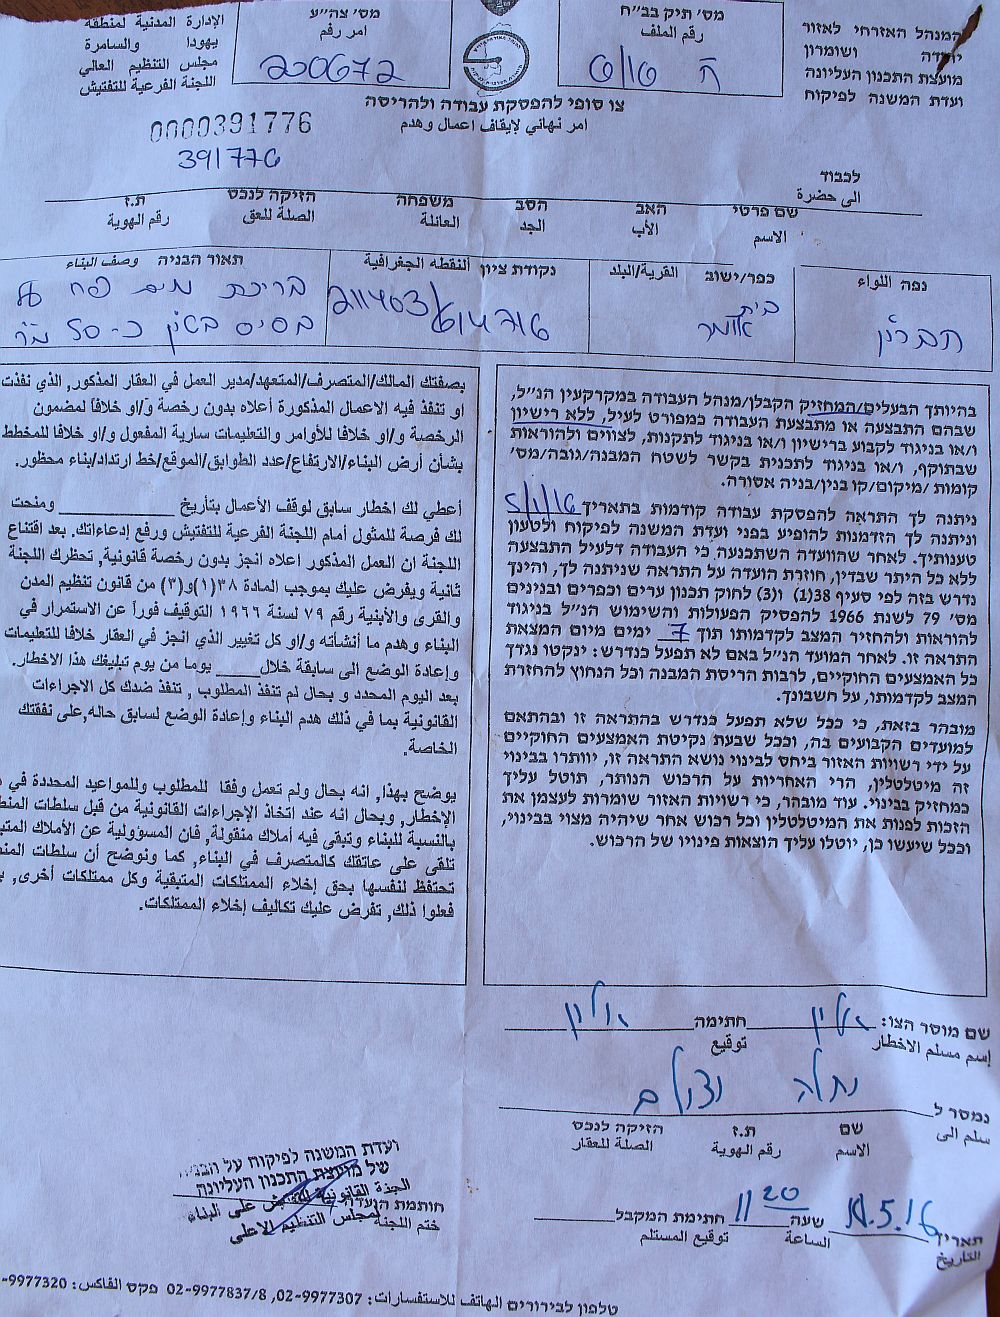 המנהל האזרחי לאזור
יהודה ושומרון
מועצת התכנון העליונה
ועדת המשנה לפיקוח
מס' תיק בב"ח
رقم الملف
ה
מס' צה"ע
امر رقم
200672
الإدارة المدنية لمنطقة
يهودا والسامرة
مجلس التنظيم العالي
اللجنة الفرعية للتفتيش
צו סופי להפסקת עבודה ולהריסה
امر نهائي لإيقاف اعمال وهدم
0000391776
391776
לכבוד
الى حضرة
שם פרטי האב הסב משפחה הזיקה לנכס ת.ז
الاسم الأب الجد العائلة الصلة للعق رقم الهوية
נפה اللواء
חברון
כפר/ישוב القرية/البلد
בית אומר
נקודת ציון النقطه الجغرافية
211403/614716
תאור הבניה وصف البناء
בריכת מים פח על
בסיס בטון כ-50 מ"ר
בהיותך הבעלים/המחזיק הקבלן/מנהל העבודה במקרקעין הנ"ל,
שבהם התבצעה או מתבצעת העבודה כמפורט לעיל, ללא רישיון
ו/או בניגוד לקבוע ברישיון ו/או בניגוד לתקנות, לצווים ולהוראות
שבתוקף, ו/או בניגוד לתכנית בקשר לשטח המבנה/גובה/מס'
קומות /מיקום/קו בנין/בניה אסורה.
ניתנה לך התראה להפסקת עבודה קודמות בתאריך 5/1/16
וניתנה לך הזדמנות להופיע בפני ועדת המשנה לפיקוח ולטעון
טענותיך. לאחר שהוועדה השתכנעה כי העבודה דלעיל התבצעה
ללא כל היתר שבדין, חוזרת הועדה על התראה שניתנה לך, והינך
נדרש בזה לפי סעיף 38(1) ו(3) לחוק תכנון ערים וכפרים ובנינים
מס' 79 לשנת 1966 להפסיק הפעולות והשימוש הנ"ל בניגוד
להוראות ולהחזיר המצב לקדמותו תוך 7 ימים מיום המצאת
התראה זו. לאחר המועד הנ"ל באם לא תפעל כנדרש: ינקטו נגדך
כל האמצעים החוקיים, לרבות הריסת המבנה וכל הנחוץ להחזרת
המצב לקדמותו, על חשבונך.
מובהר בזאת, כי ככל שלא תפעל כנדרש בהתראה זו ובהתאם
למועדים הקבועים בה, וככל שבעת נקיטת האמצעים החוקיים
על ידי רשויות האזור ביחס לבינוי נושא התראה זו, יוותרו בבינוי
זה מיטלטלין, הרי האחריות על הרכוש הנותר, תוטל עליך
כמחזיק בבינוי. עוד מובהר, כי רשויות האזור שומרות לעצמן את
הזכות לפנות את המיטלטלין וכל רכוש אחר שיהיה מצוי בבינוי,
וככל שיעשו כן, יוטלו עליך הוצאות פינויו של הרכוש.
بصفتك المالك/المتصرف/المتعهد/مدير العمل في العقار المذكور, الذي نفذت
او تنفذ فيه الاعمال المذكورة أعلاه بدون رخصة و/او خلافاً لمضمون
الرخصة و/او خلافا للأوامر والتعليمات سارية المفعول و/او خلافا للمخطط
بشأن أرض البناء/الارتفاع/عدد الطوابق/الموقع/خط ارتداد/بناء محظور.
أعطي لك اخطار سابق لوقف الأعمال بتأريخ ____ ومنحت
لك فرصة للمثول أمام اللجنة الفرعية للتفتيش ورفع إدعاءاتك. بعد اقتناع
اللجنة ان العمل المذكور اعلاه انجز بدون رخصة قانونية, تحظرك اللجنة
ثانية ويفرض عليك بموجب المادة ٣٨(١)و(٣) من قانون تنظيم المدن
والقرى والأبنية رقم ٧٩ لسنة ١٩٦٦ التوقيف فوراً عن الاستمرار في
البناء وهدم ما أنشأته و/او كل تغيير الذي انجز في العقار خلافا للتعليمات
وإعادة الوضع الى سابقة خلال ____ يوما من يوم تبليغك هذا الاخطار.
بعد اليوم المحدد و بحال لم تنفذ المطلوب , تنفذ ضدك كل الاجراءات
القانونية بما في ذلك هدم البناء وإعادة الوضع لسابق حاله,على نفقتك
الخاصة.
يوضح بهذا, انه بحال ولم تعمل وفقا للمطلوب وللمواعيد المحددة في
الإخطار, وبحال انه عند اتخاذ الإجراءات القانونية من قبل سلطات
بالنسبة للبناء وتبقى فيه أملاك منقولة, فان المسؤولية عن الأملاك
تلقى على عاتقك كالمتصرف في البناء, كما ونوضح أن سلطات
تحتفظ لنفسها بحق إخلاء الممتلكات المتبقية وكل ممتلكات أخرى,
فعلوا ذلك, تفرض عليك تكاليف إخلاء الممتلكات.
שם מוסר הצו: חתימה
إسم مسلم الاخطار توقيع
נמסר ל
سلم الى
שם ת.ז הזיקה לנכס
الاسم رقم الهوية الصلة للعقار
תאריך שעה 11 20 חתימת המקבל
التاريخ الساعة توقيع المستلم
ועדת המשנה לפיקוח על הבניה
של מועצת התכנון העליונה
חותמת הועדה
ختم اللجنة
لمجلس التنظيم الاعلى
טלפון לבירורים الهاتف للاستفسارات: 02-9977307, 02-9977837/8 פקס الفاكس: 9977320-